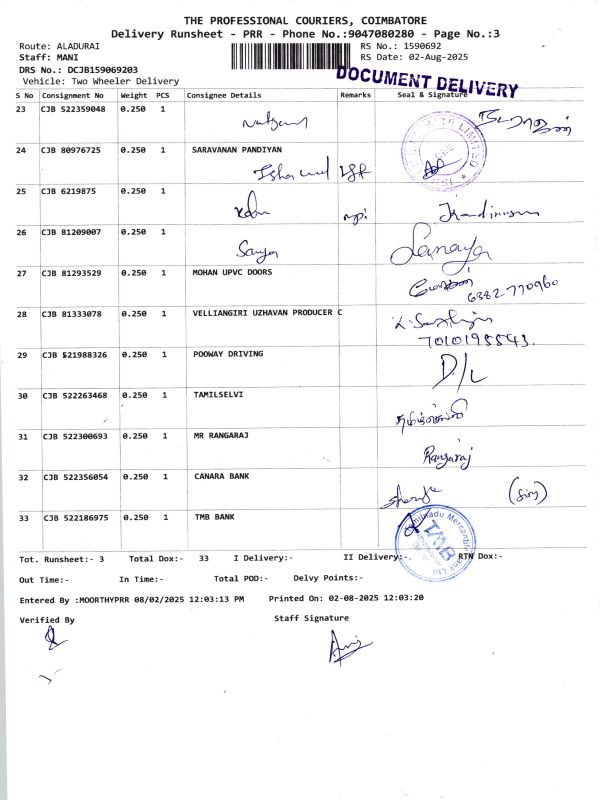 THE PROFESSIONAL COURIERS, COIMBATORE
Delivery Runsheet - PRR - Phone No.:9047080280 - Page No.:3
Route: ALADURAI
RS No.: 1590692
Staff: MANI
RS Date: 02-Aug-2025
DRS No.: DCJB159069203
DOCUMENT DELIVERY
Vehicle: Two Wheeler Delivery
S No Consignment No Weight PCS Consignee Details Remarks Seal & Signature
23 CJB 522359048 0.250 1
24 CJB 80976725 0.250 1 SARAVANAN PANDIYAN
25 CJB 6219875 0.250 1
26 CJB 81209007 0.250 1
Sanya Sanaya
27 CJB 81293529 0.250 1 MOHAN UPVC DOORS
6382770960
28 CJB 81333078 0.250 1 VELLIANGIRI UZHAVAN PRODUCER C
7010195543.
29 CJB 521988326 0.250 1 POOWAY DRIVING
D/L
30 CJB 522263468 0.250 1 TAMILSELVI
தமிழ்செல்வி
31 CJB 522300693 0.250 1 MR RANGARAJ
Rangaraj
32 CJB 522356054 0.250 1 CANARA BANK
33 CJB 522186975 0.250 1 TMB BANK
Tamilnadu Mercantile Bank Ltd
TMB
Tot. Runsheet:- 3 Total Dox:- 33 I Delivery:- II Delivery:- RTN Dox:-
Out Time:- In Time:- Total POD:- Delvy Points:-
Entered By :MOORTHYPRR 08/02/2025 12:03:13 PM Printed On: 02-08-2025 12:03:20
Verified By Staff Signature